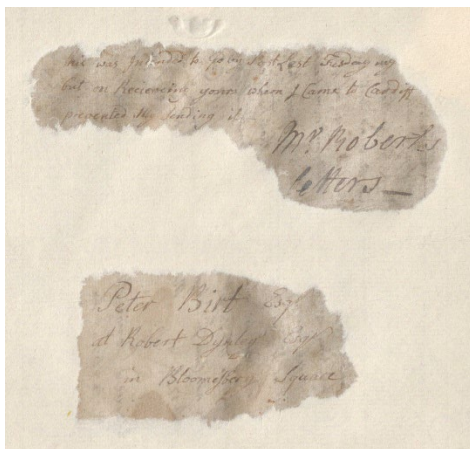 was Intended to go by Post Last
but on Receiveing yours when I Came to Cardiff
prevented the sending it
Mr. Roberts
letters —
Peter Birt Esqr
at Robert Dynley Esqr
in Bloomsbery Square